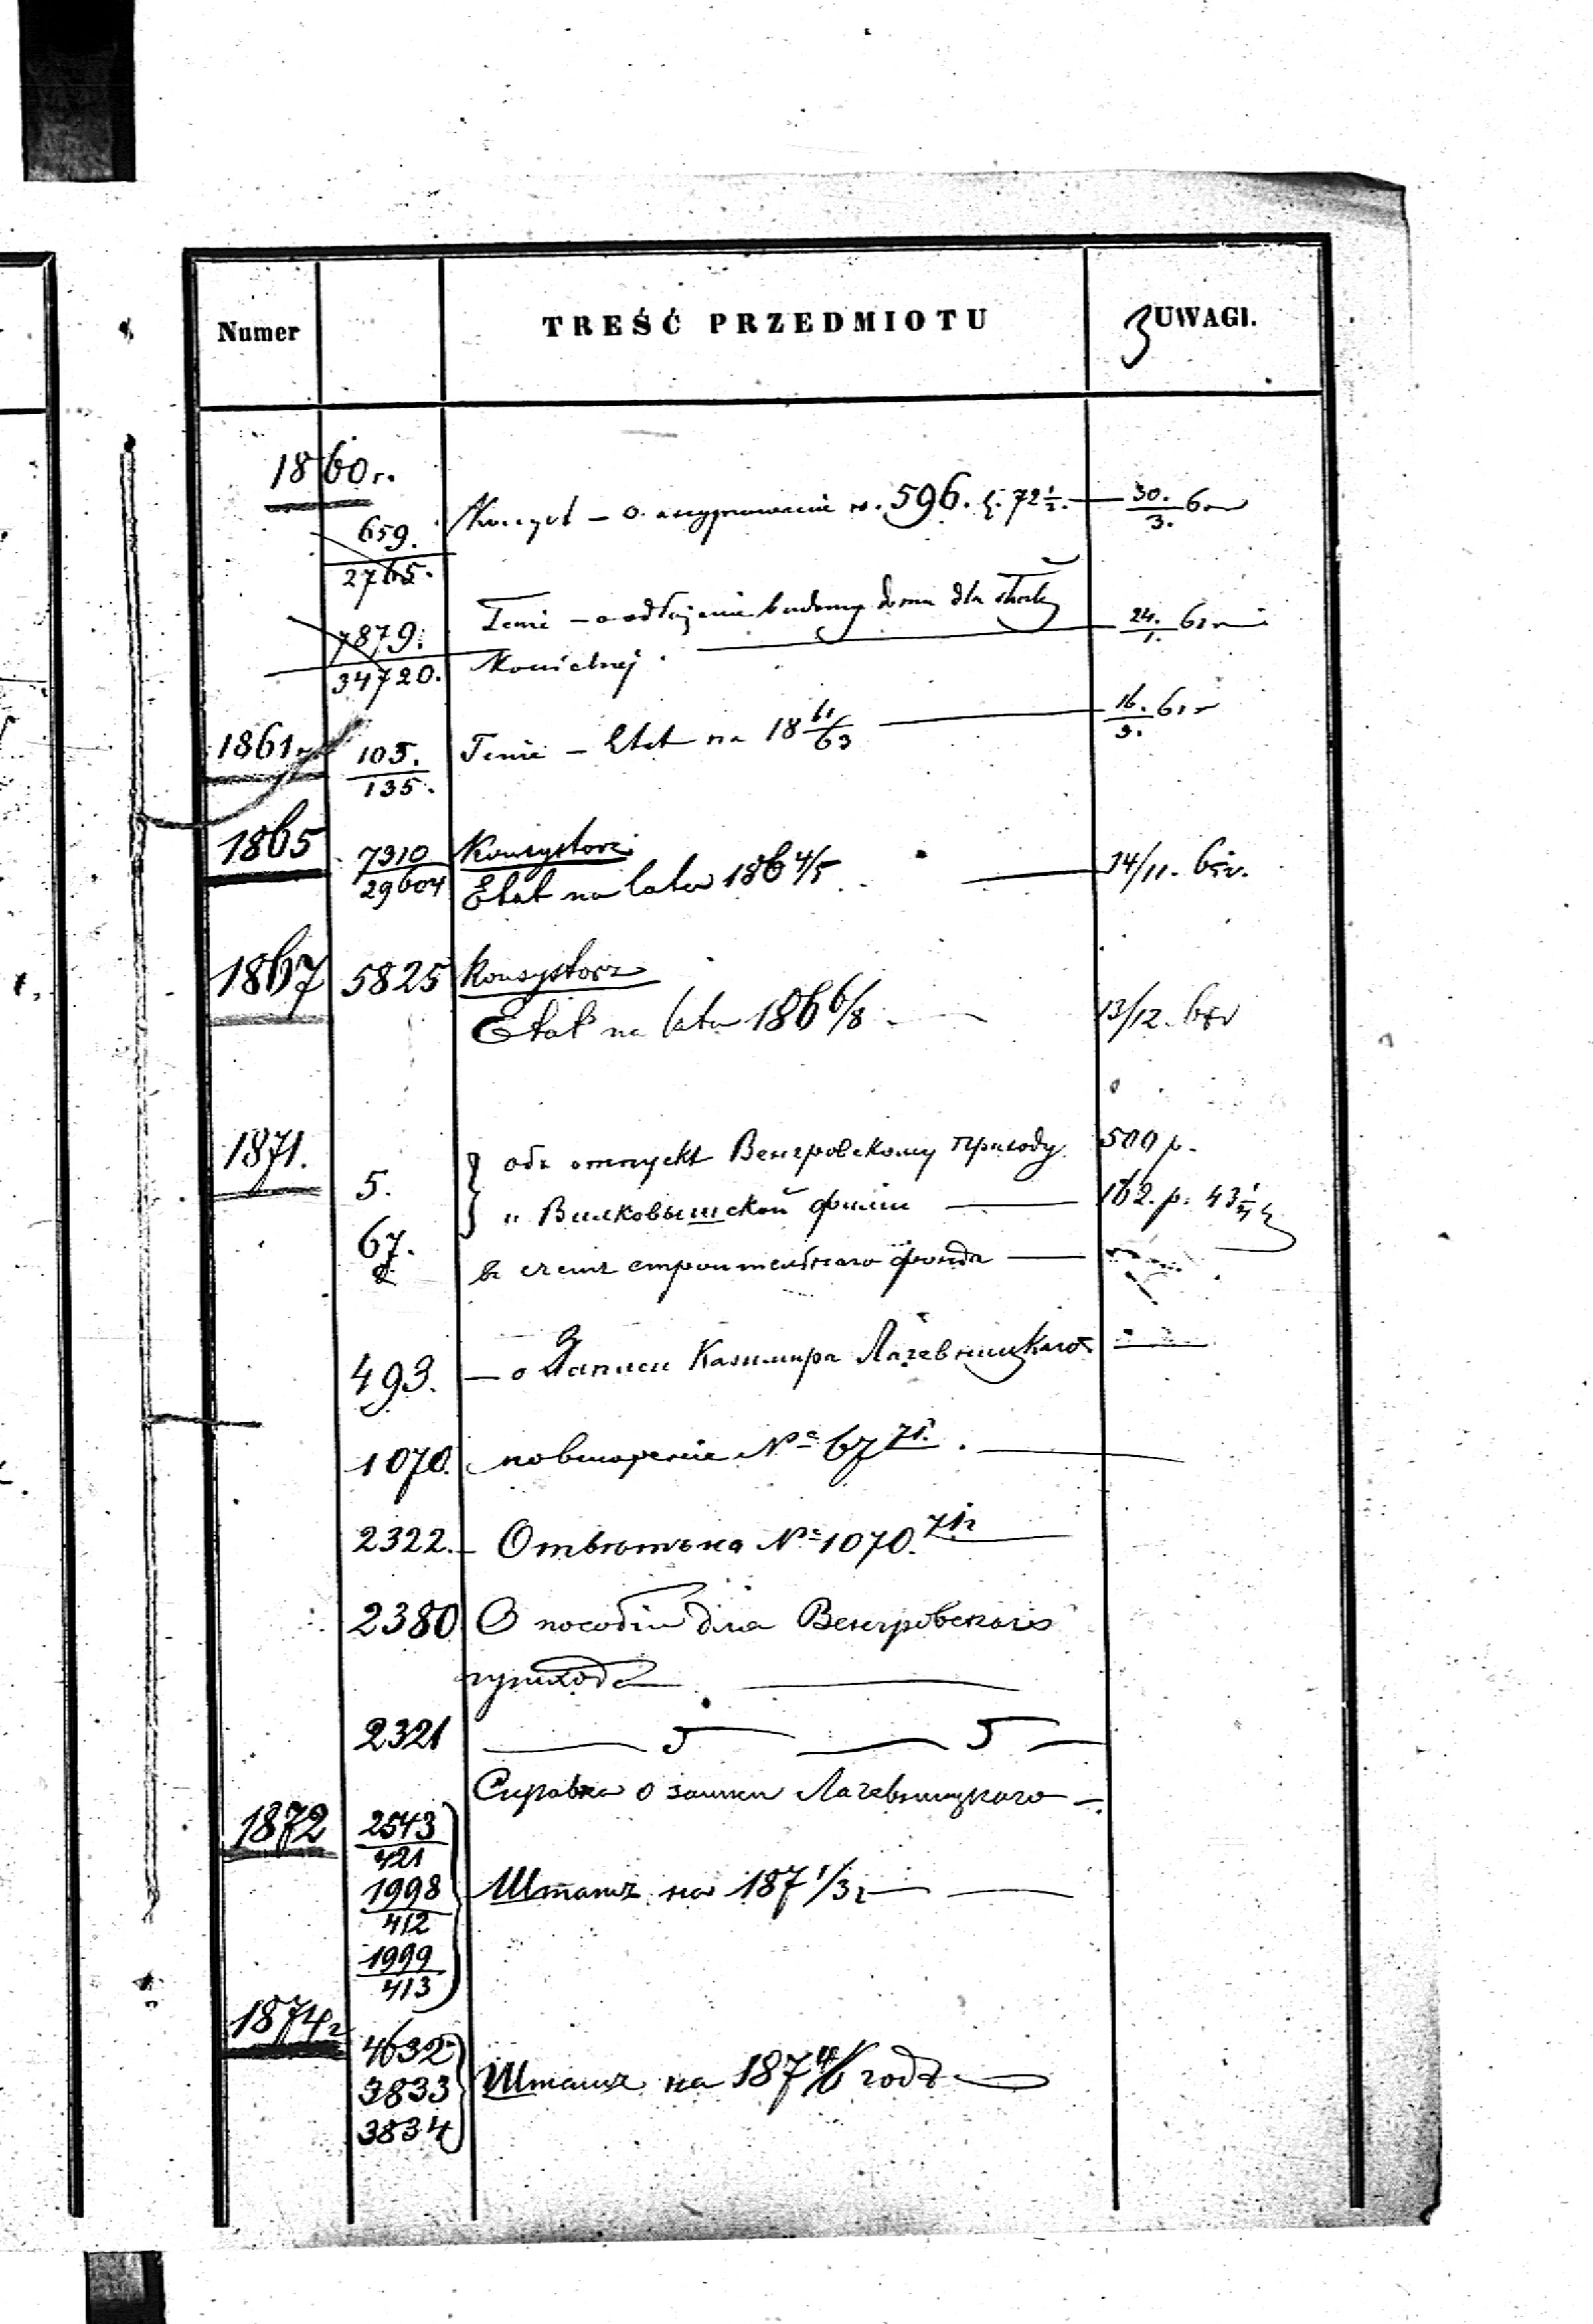 Numer TREŚĆ PRZEDMIOTU UWAGI.
3
1860 r.
659. Konsyst – o asygnowanie rs. 596. k. 72 1/2. — 30./3. 6
2765.
7879. Tenże – o odłożenie budowy domu dla służby 24./1. 61
34720. Kościelnej.
1861 r. 105. Tenże – Etat na 18 61/63 — 16./3. 61 r
135.
1865 7310 Konsystorz
29604 Etat na lata 186 4/5 — 14/11. 65 r.
1867 5825 Konsystorz
Etat na lata 186 6/8 13/12. 67 r
1871. 5. объ отпускѣ Венгровскому приходу 500 р.
67. " Вилковышской филии — 162. р. 43 1/2 к
2 въ счетъ строительнаго фонда —
493. — о Записи Казимира
1070. повтореніе № 67 71. —
2322. – Отвѣтъ на № 1070. 71 г.
2380 О пособіи для Венгровскаго
прихода —
2321
Справка о записи
1872 2543
421
1998 Штатъ на 187 1/3 г — —
412
1999
413
1874 г 4632
3833 Штатъ на 187 4/6 годъ —
3834